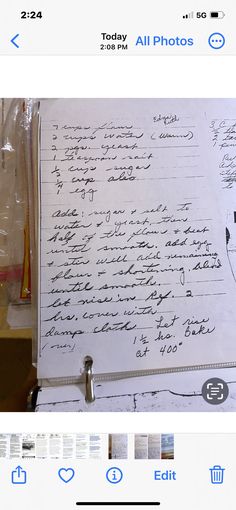 2:24
5G
Today
2:08 PM
All Photos
7 cups flour
2 cups water (Warm)
2 pgs. yeast
1 teaspoon salt
1/2 cup sugar
1/4 cup oleo
1 egg
Add: sugar & salt to
water & yeast, then
half of the flour & beat
until smooth. add egg
& stir well add remaining
flour & shortening, blend
until smooth.
let rise in Ref. 2
hrs, cover with
damp cloth. Let rise
(over) 1 1/2 hrs. bake
at 400°
Edit